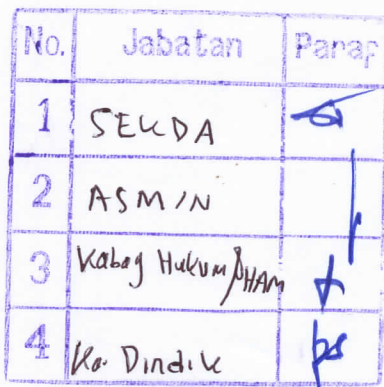 No. Jabatan Paraf
1 SEKDA
2 ASMIN
3 Kabag Hukum/HAM
4 Ka. Dindik